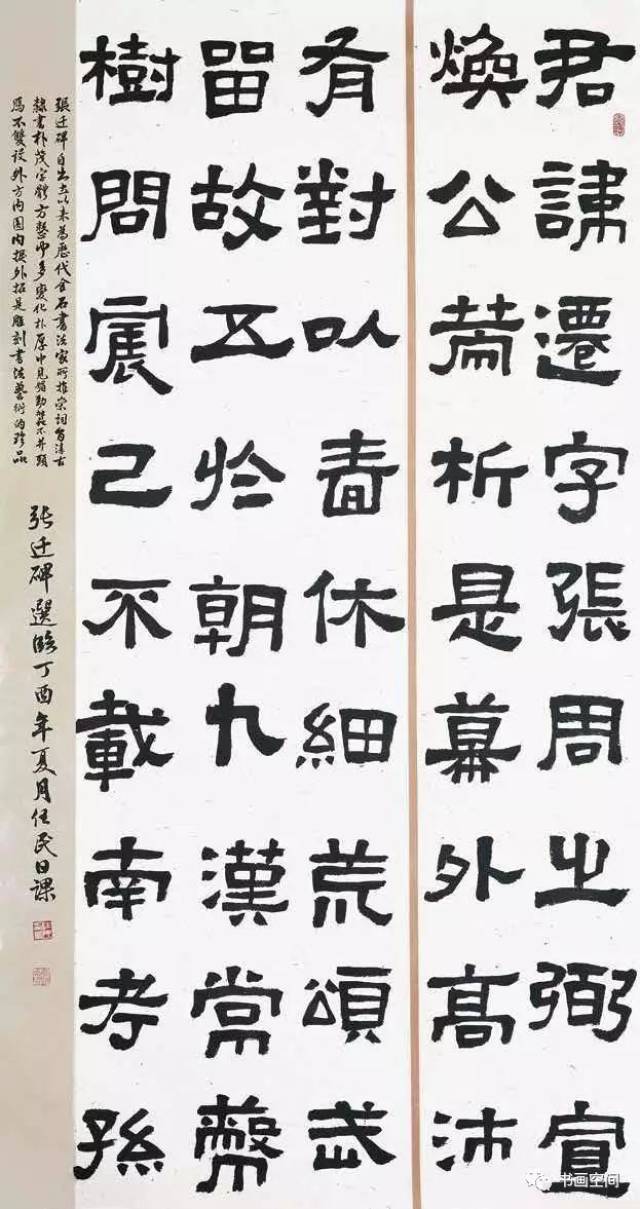 君諱遷字張周之弼宣
煥公析是幕外高沛
有對以休細荒頌武
留故五於朝九漢常幣
樹問己不載南孝孫
張迁碑自出土以来為歷代金石書法家所推崇詞旨淳古
隸書朴茂字體方整中多變化朴厚中見勁不并頭
不雙設外方内圆内擫外拓是雕刻書法藝術的珍品
张迁碑選臨丁酉年夏月任民日課
书画空间